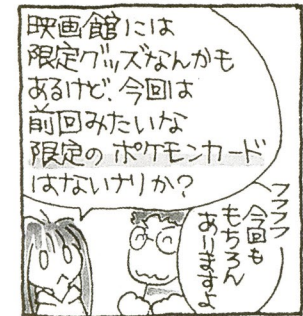 映画館には
限定グッズなんかも
あるけど、今回は
前回みたいな
限定のポケモンカード
はないナリか?
フフフフ
今回も
もちろん
ありますよ